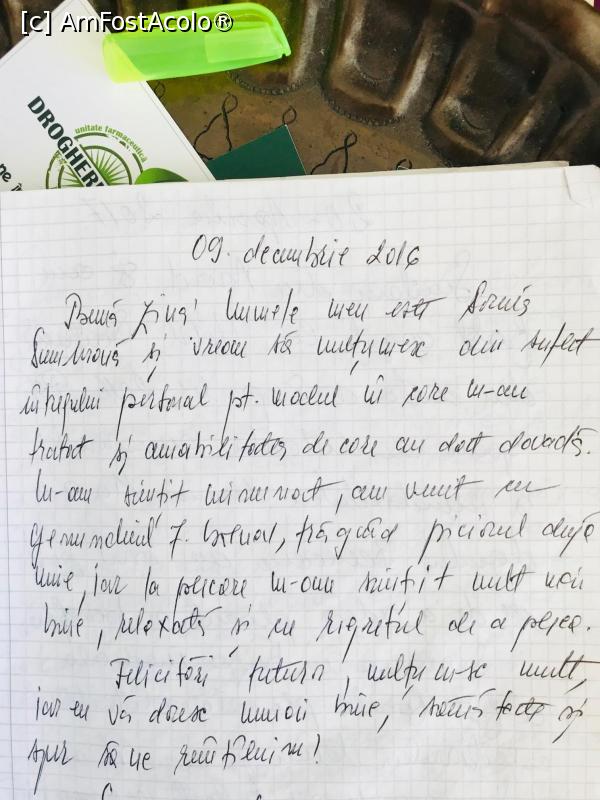 [c] AmFostAcolo®
unitate farmaceutică
DROGHERI
09. decembrie 2016
Bună ziua! Numele meu este
și vreau să mulțumesc din suflet
întregului personal pt. modul în care m-au
tratat și amabilitatea de care au dat dovadă.
M-am simțit minunat, am venit cu
genunchiul f. bolnav, trăgând piciorul după
mine, iar la plecare m-am simțit mult mai
bine, relaxată și cu regretul de a pleca.
Felicitări tuturor, mulțumesc mult,
iar eu vă doresc numai bine, sănătate și
sper să ne reîntâlnim!